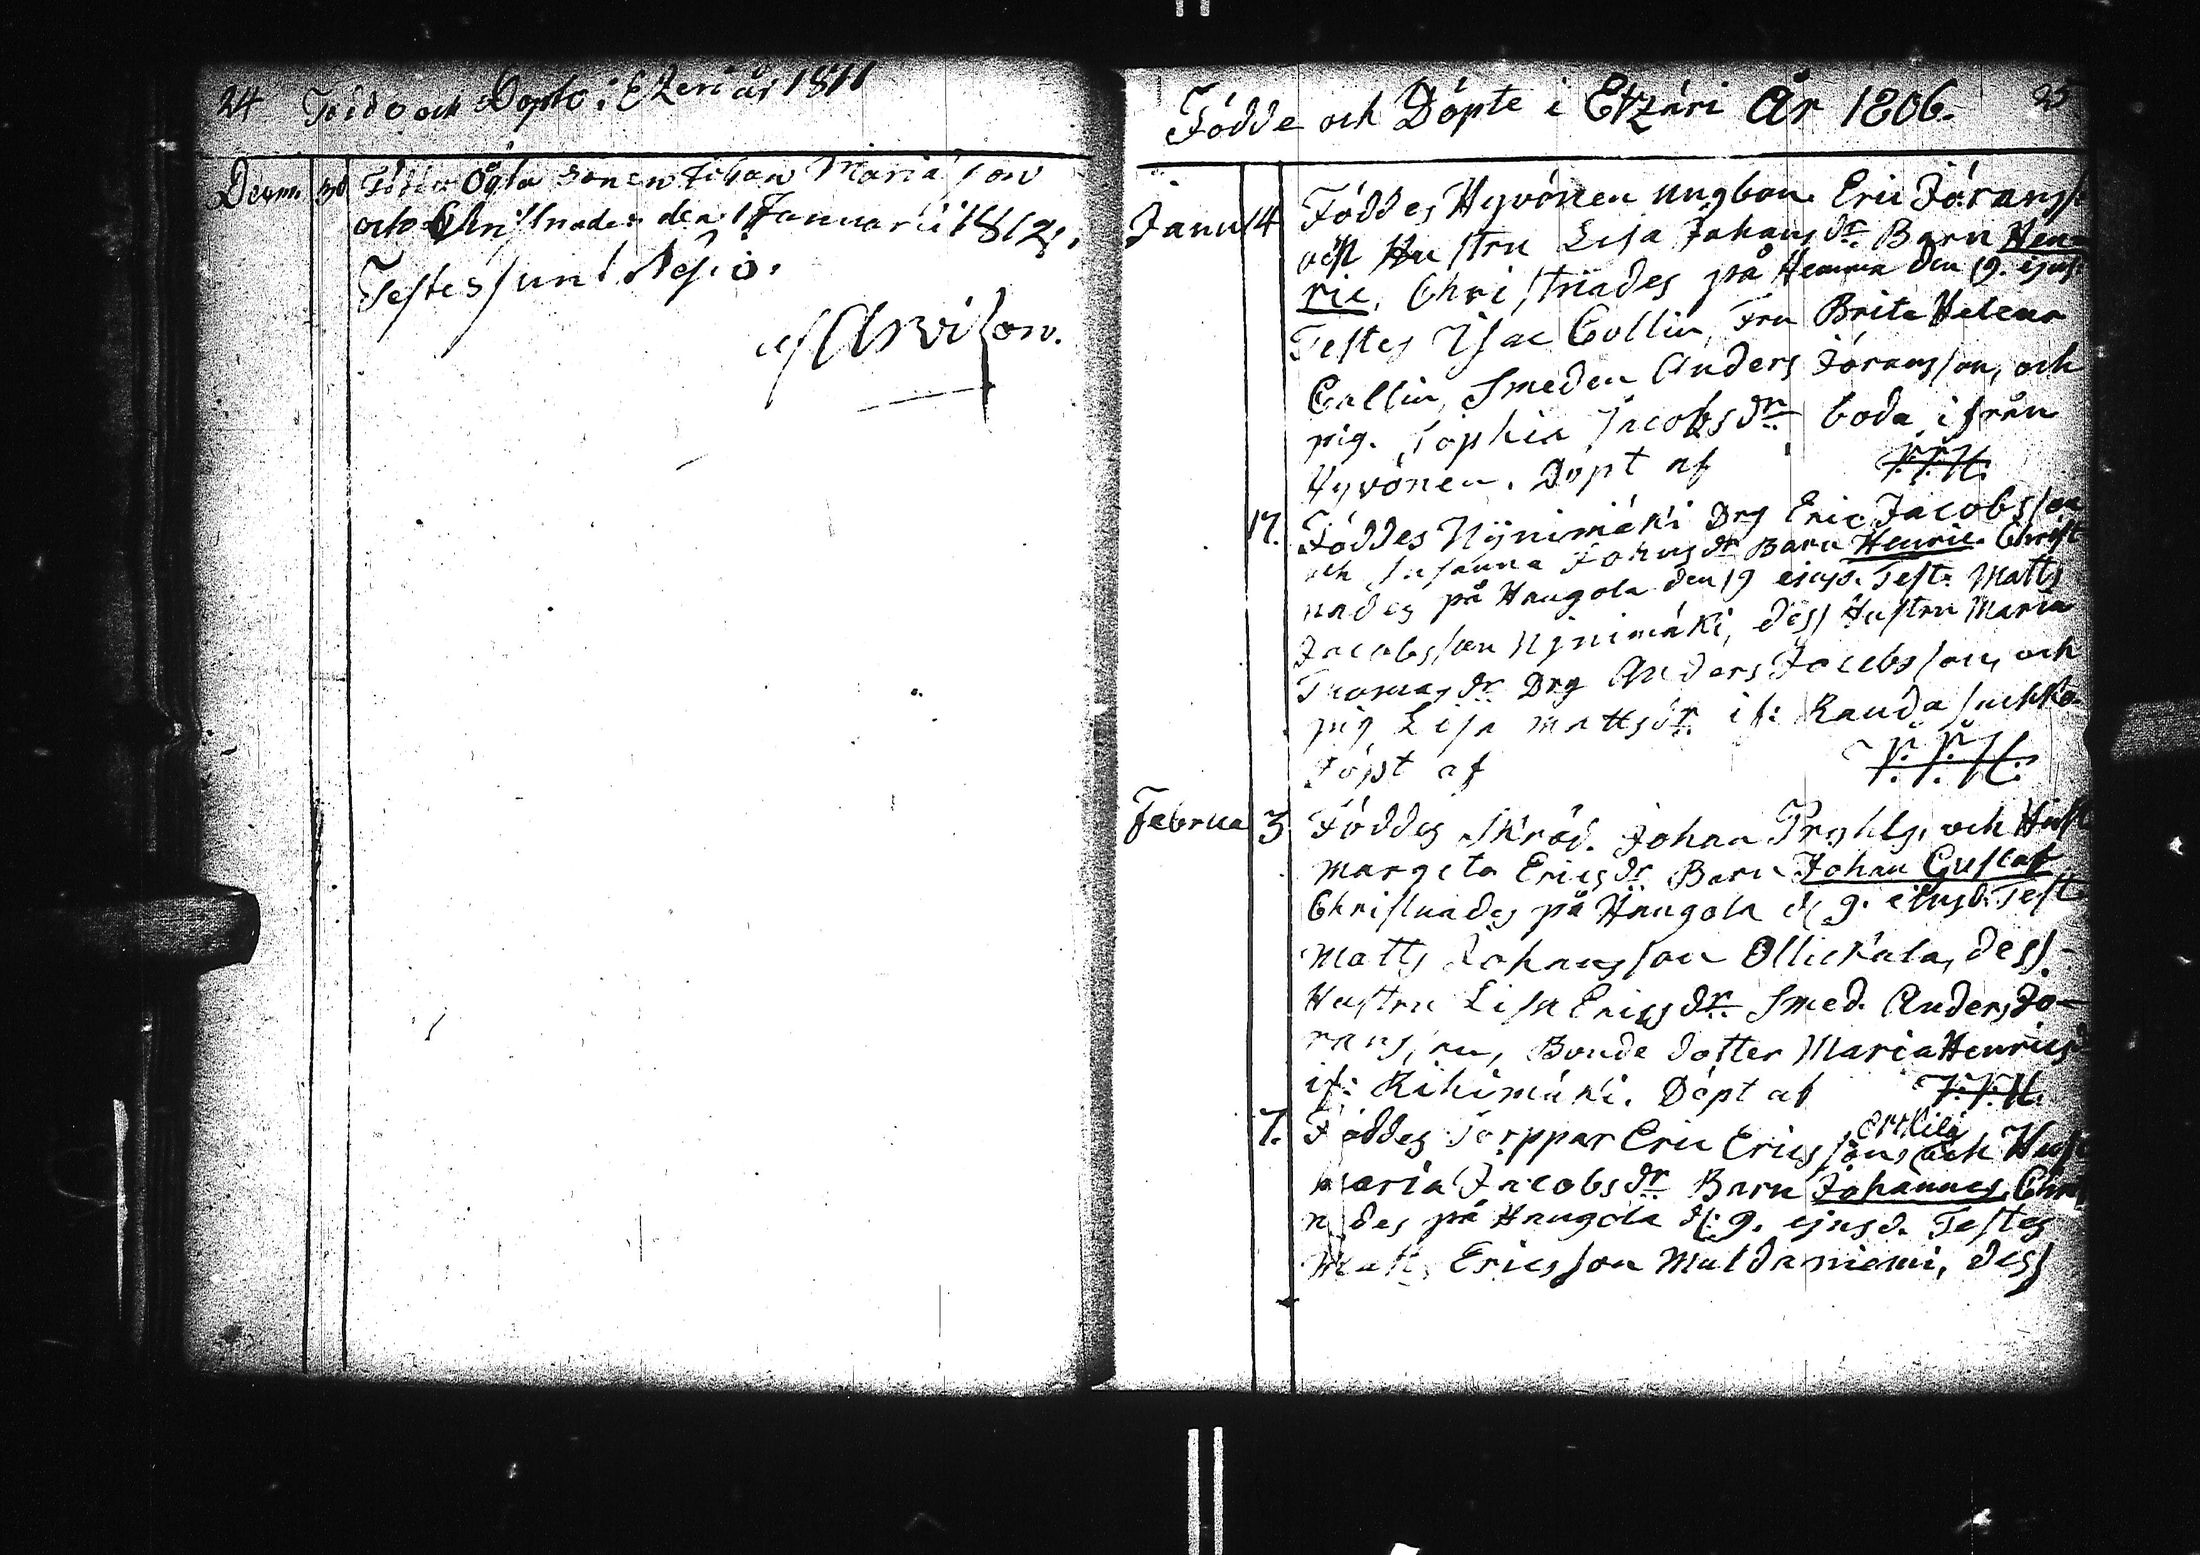 24 Födde och Döpte i Etzeri år 1811
Decem. 30 Föddes Ögla sonen Johan Mariæson
och Christnades den 1 Januarii 1812.
Testes sunt
af Arvison.
Födde och Döpte i Etzäri År 1806. 25
Janu 14 Föddes Hyvönen ungbon. Eric Jöranss
och Hustru Lisa Johansdr. Barn Hen-
ric. Christnades på Hemma den 19. ejusd
Testes Isac Collin, Fru Brita Helena
Collin, Smeden Anders Jöransson, och
pig. Sophia Jacobsdr. boda ifrån
Hyvönen. Döpt af
17. Föddes Nynimäki Drg Eric Jacobsson
och Susanna Johansdr Barn Henric. Christ-
nades på Haugola den 19 ejusd. Test. Matts
Jacobsson Nynimäki, dess Hustru Maria
Thomasdr. Drg Anders Jacobsson, och
pig Lisa Mattsdr. if:
Döpt af
Februa 3 Föddes Skräd. Johan och Hust
Margeta Ericsdr. Barn Johan Gustaf
Christnades på Haugola d. 9. ejusd. Test
Matts Johansson Ollickala, dess
Hustru Lisa Ericsdr. Smed. Anders Jö-
ransson, Bonde dotter Maria Henricsd
if: Rihimäki. Döpt af
7. Föddes Torppar Eric Ericsson och Hust
Maria Jacobsdr. Barn Johannes, Christ
nades på Haugola d. 9. ejusd. Testes
Matts Ericsson Muldaniemi, dess